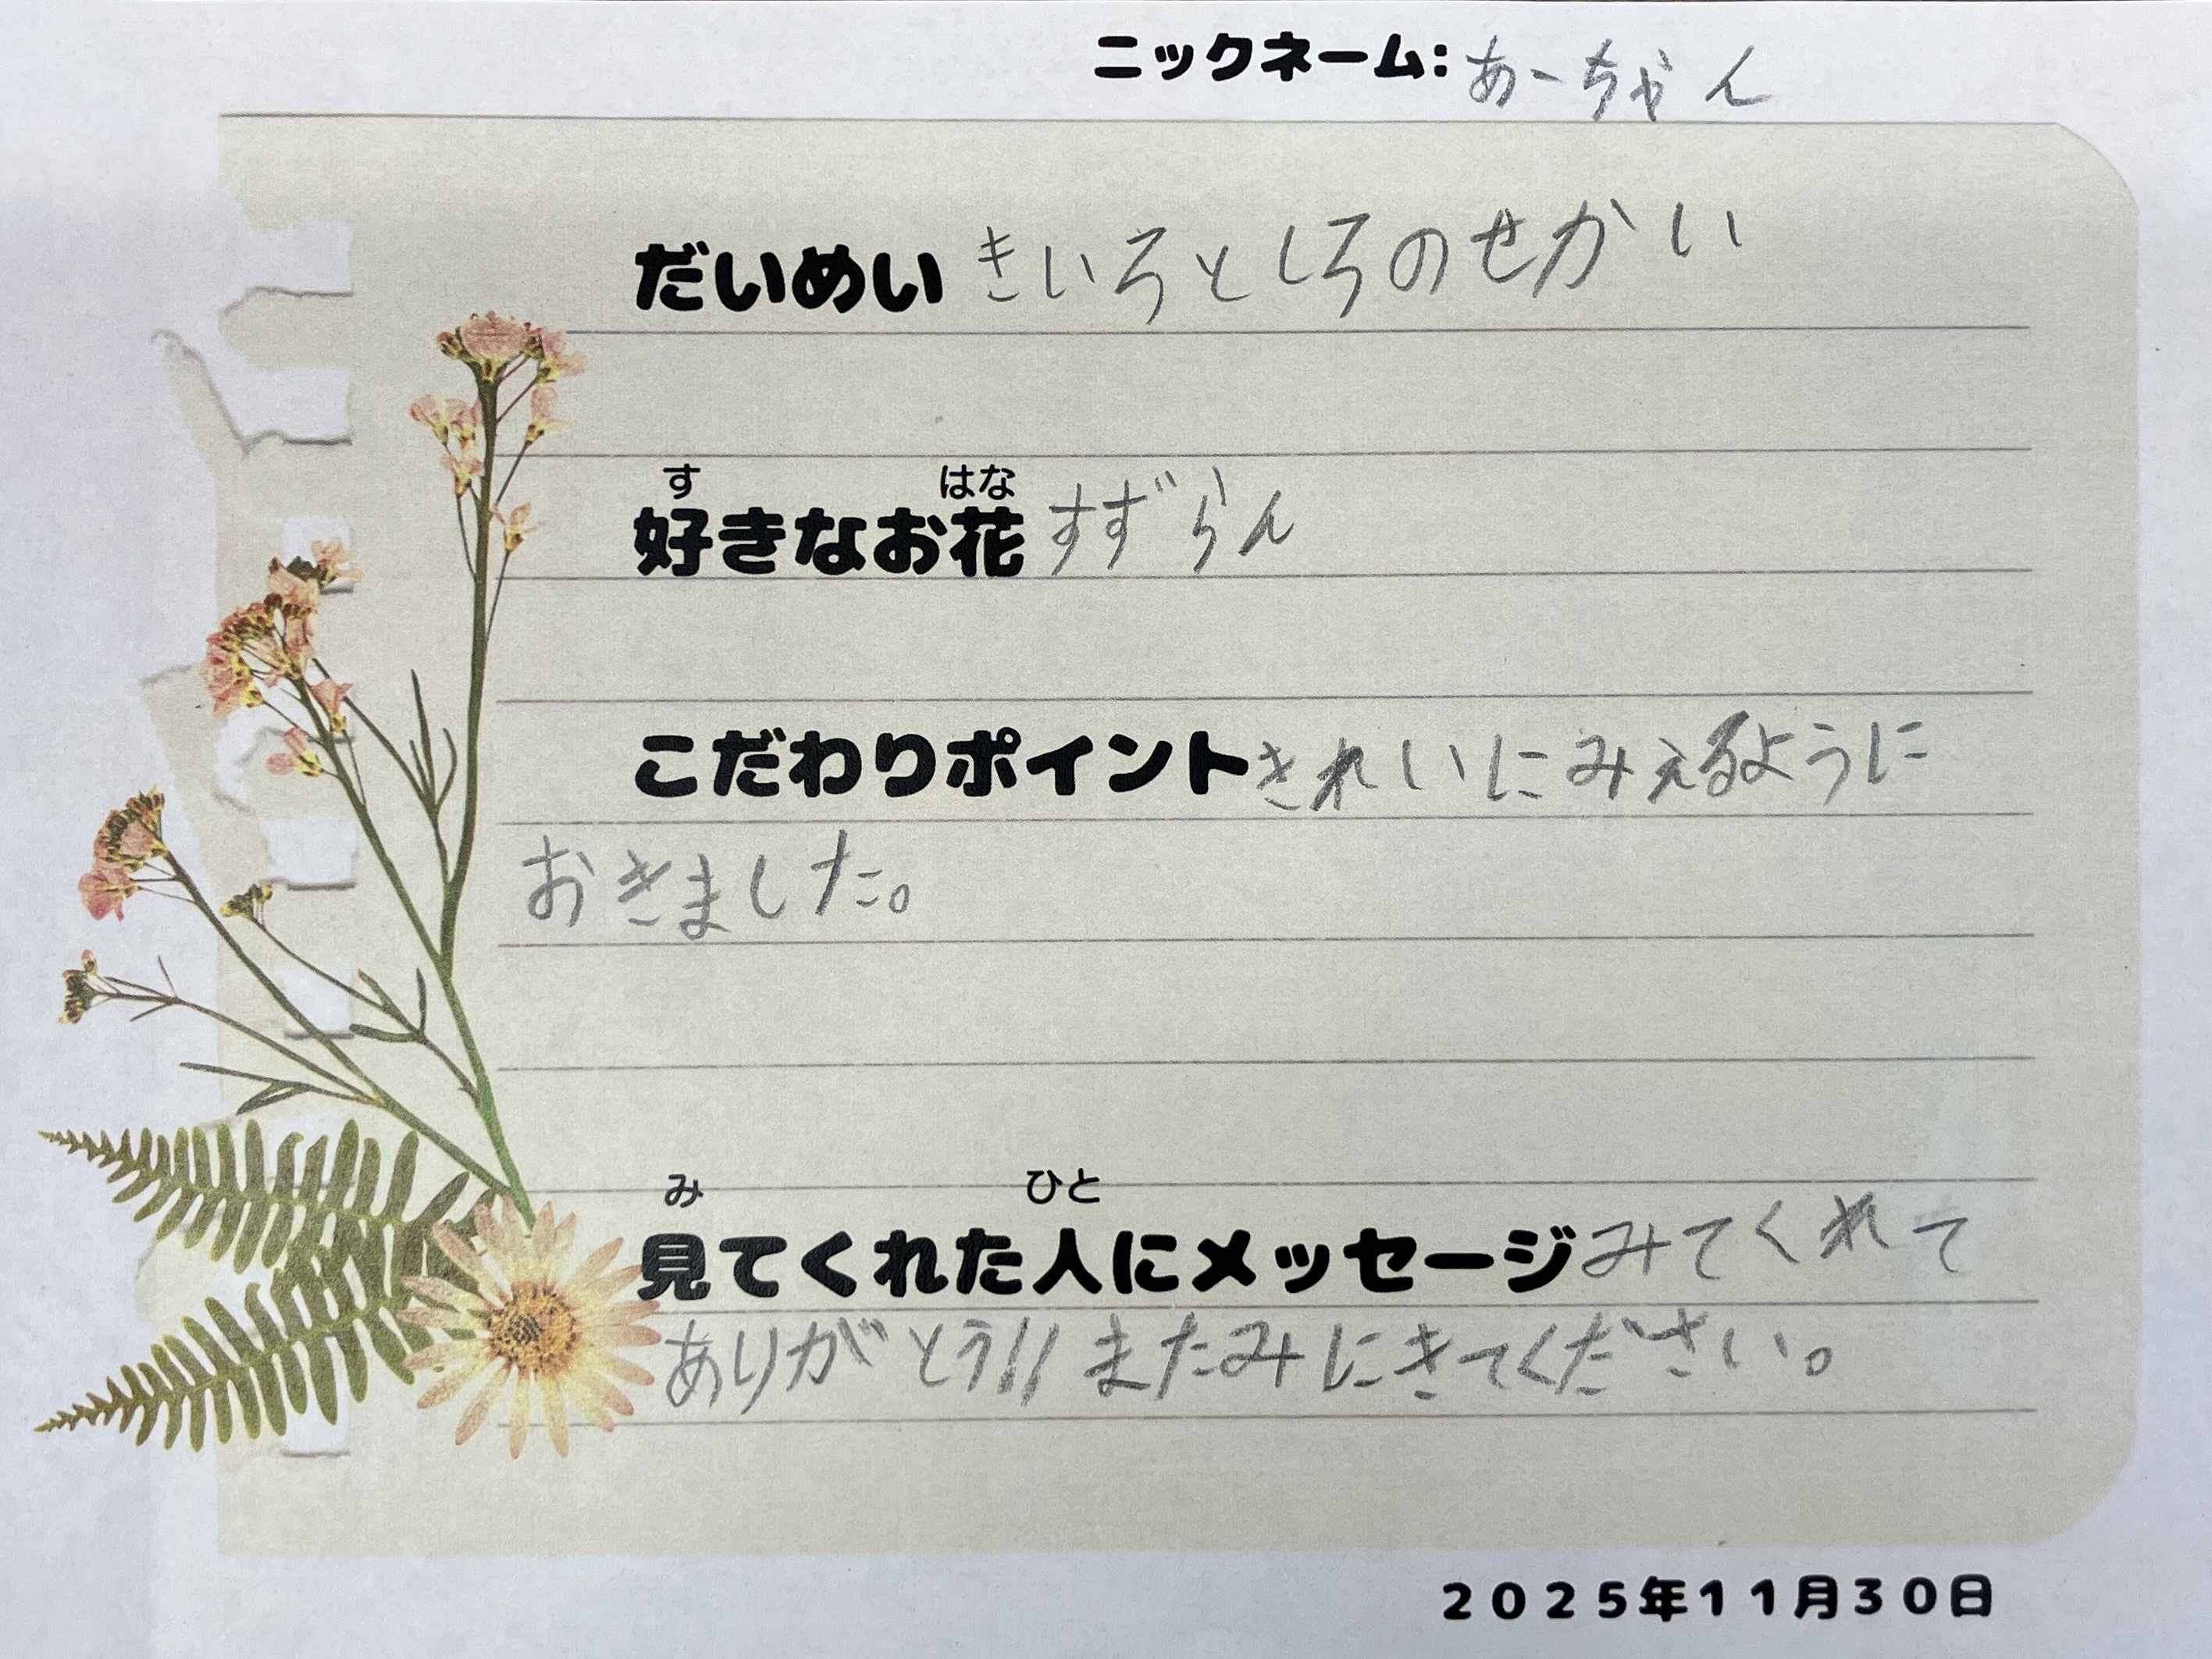 ニックネーム:あーちゃん
だいめい きいろとしろのせかい
す はな
好きなお花 すずらん
こだわりポイントきれいにみえるように
おきました。
み ひと
見てくれた人にメッセージみてくれて
ありがとう!!またみにきてください。
2025年11月30日